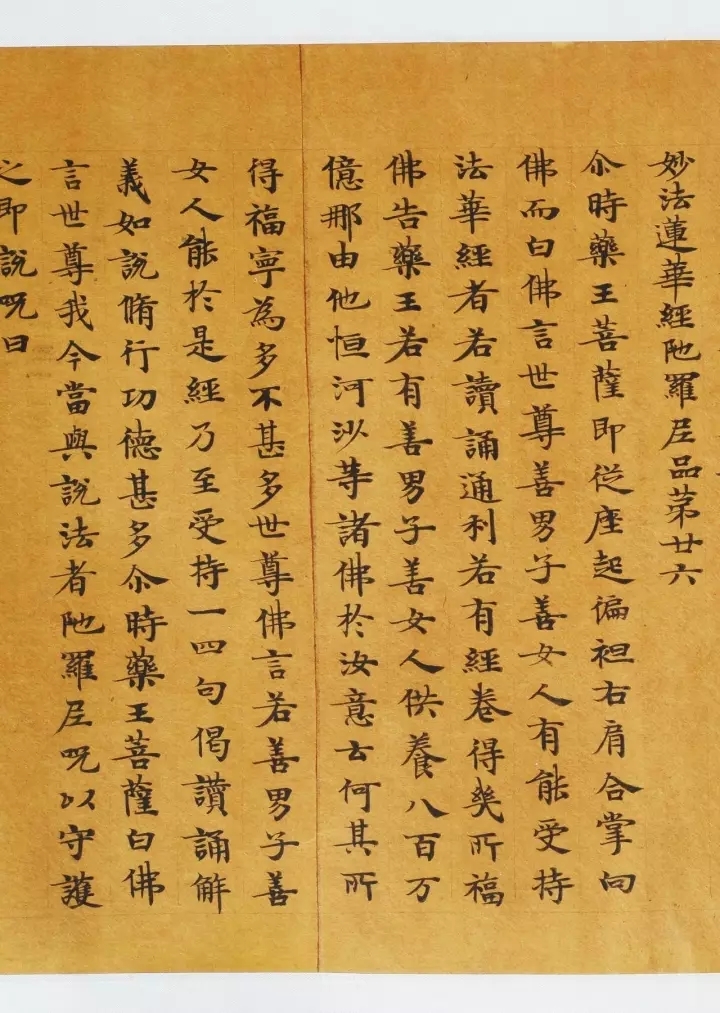 妙法蓮華經陁羅尼品苐廿六
尒時藥王菩薩即從座起偏袒右肩合掌向
佛而白佛言世尊善男子善女人有能受持
法華經者若讀誦通利若有經卷得㡬所福
佛告藥王若有善男子善女人供養八百万
億那由他恒河沙等諸佛於汝意云何其所
得福寧為多不甚多世尊佛言若善男子善
女人能於是經乃至受持一四句偈讀誦解
義如說脩行功德甚多尒時藥王菩薩白佛
言世尊我今當與說法者陁羅尼呪以守護
之即說呪曰